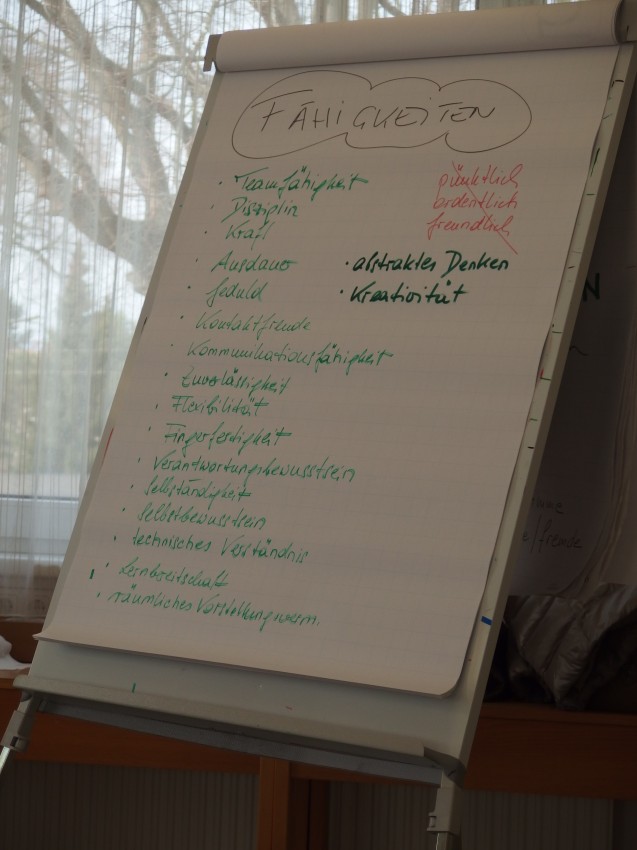 FÄHIGKEITEN
• Teamfähigkeit
• Disziplin
• Kraft
• Ausdauer
• Geduld
• Kontaktfreude
• Kommunikationsfähigkeit
• Zuverlässigkeit
• Flexibilität
• Fingerfertigkeit
• Verantwortungsbewusstsein
• Selbständigkeit
• Selbstbewusstsein
• technisches Verständnis
• Lernbereitschaft
• räumliches Vorstellungsverm.
pünktlich
ordentlich
freundlich
• abstraktes Denken
• Kreativität
N